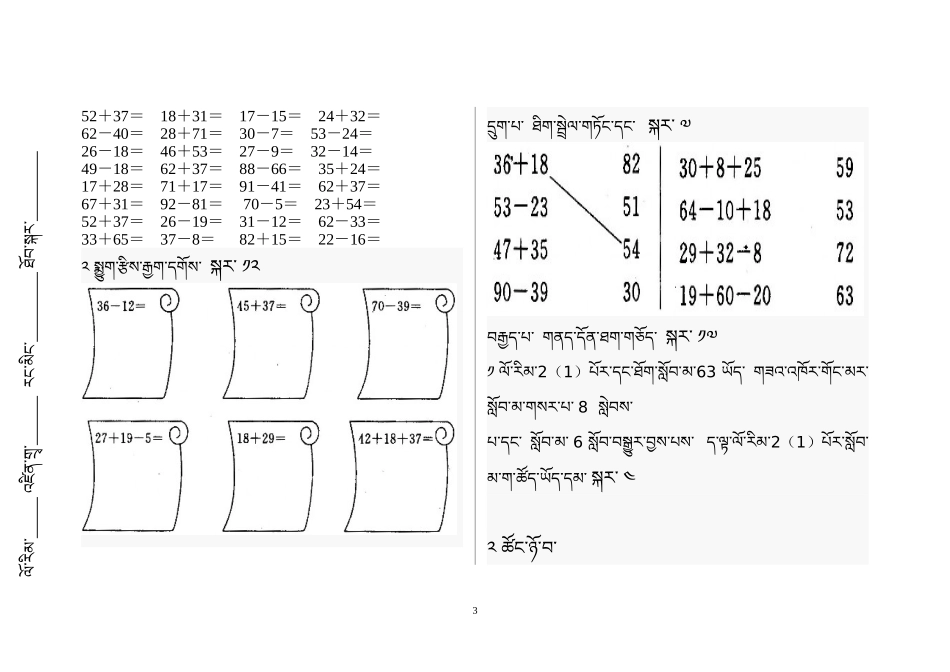 52＋37＝ 18＋31＝ 17－15＝ 24＋32＝
62－40＝ 28＋71＝ 30－7＝ 53－24＝
26－18＝ 46＋53＝ 27－9＝ 32－14＝
49－18＝ 62＋37＝ 88－66＝ 35＋24＝
17＋28＝ 71＋17＝ 91－41＝ 62＋37＝
67＋31＝ 92－81＝ 70－5＝ 23＋54＝
52＋37＝ 26－19＝ 31－12＝ 62－33＝
33＋65＝ 37－8＝ 82＋15＝ 22－16＝
༢ སྨྱུག་རྩིས་རྒྱག་དགོས་ སྐར་ ༡༢
36－12＝ 45＋37＝ 70－39＝
27＋19－5＝ 18＋29＝ 42＋18＋37＝
དྲུག་པ་ ཐིག་སྦྲེལ་གཏོང་དང་ སྐར་ ༧
36＋18 82 30＋8＋25 59
53－23 51 64－10＋18 53
47＋35 54 29＋32－8 72
90－39 30 19＋60－20 63
བརྒྱད་པ་ གནད་དོན་ཐག་གཅོད་ སྐར་ ༡༧
༡ ལོ་རིམ་2（1）པོར་དང་ཐོག་སློབ་མ་63 ཡོད་ གཟའ་འཁོར་གོང་མར་
སློབ་མ་གསར་པ་ 8 སླེབས་
པ་དང་ སློབ་མ་ 6 སློབ་བསྒྱུར་བྱས་པས་ ད་ལྟ་ལོ་རིམ་2（1）པོར་སློབ་
མ་ག་ཚོད་ཡོད་དམ་ སྐར་ ༤
༢ ཚོང་ཉོ་བ་
ལོ་རིམ་ འཛིན་གྲྭ་ རང་མིང་ ཐོབ་སྐར་
3